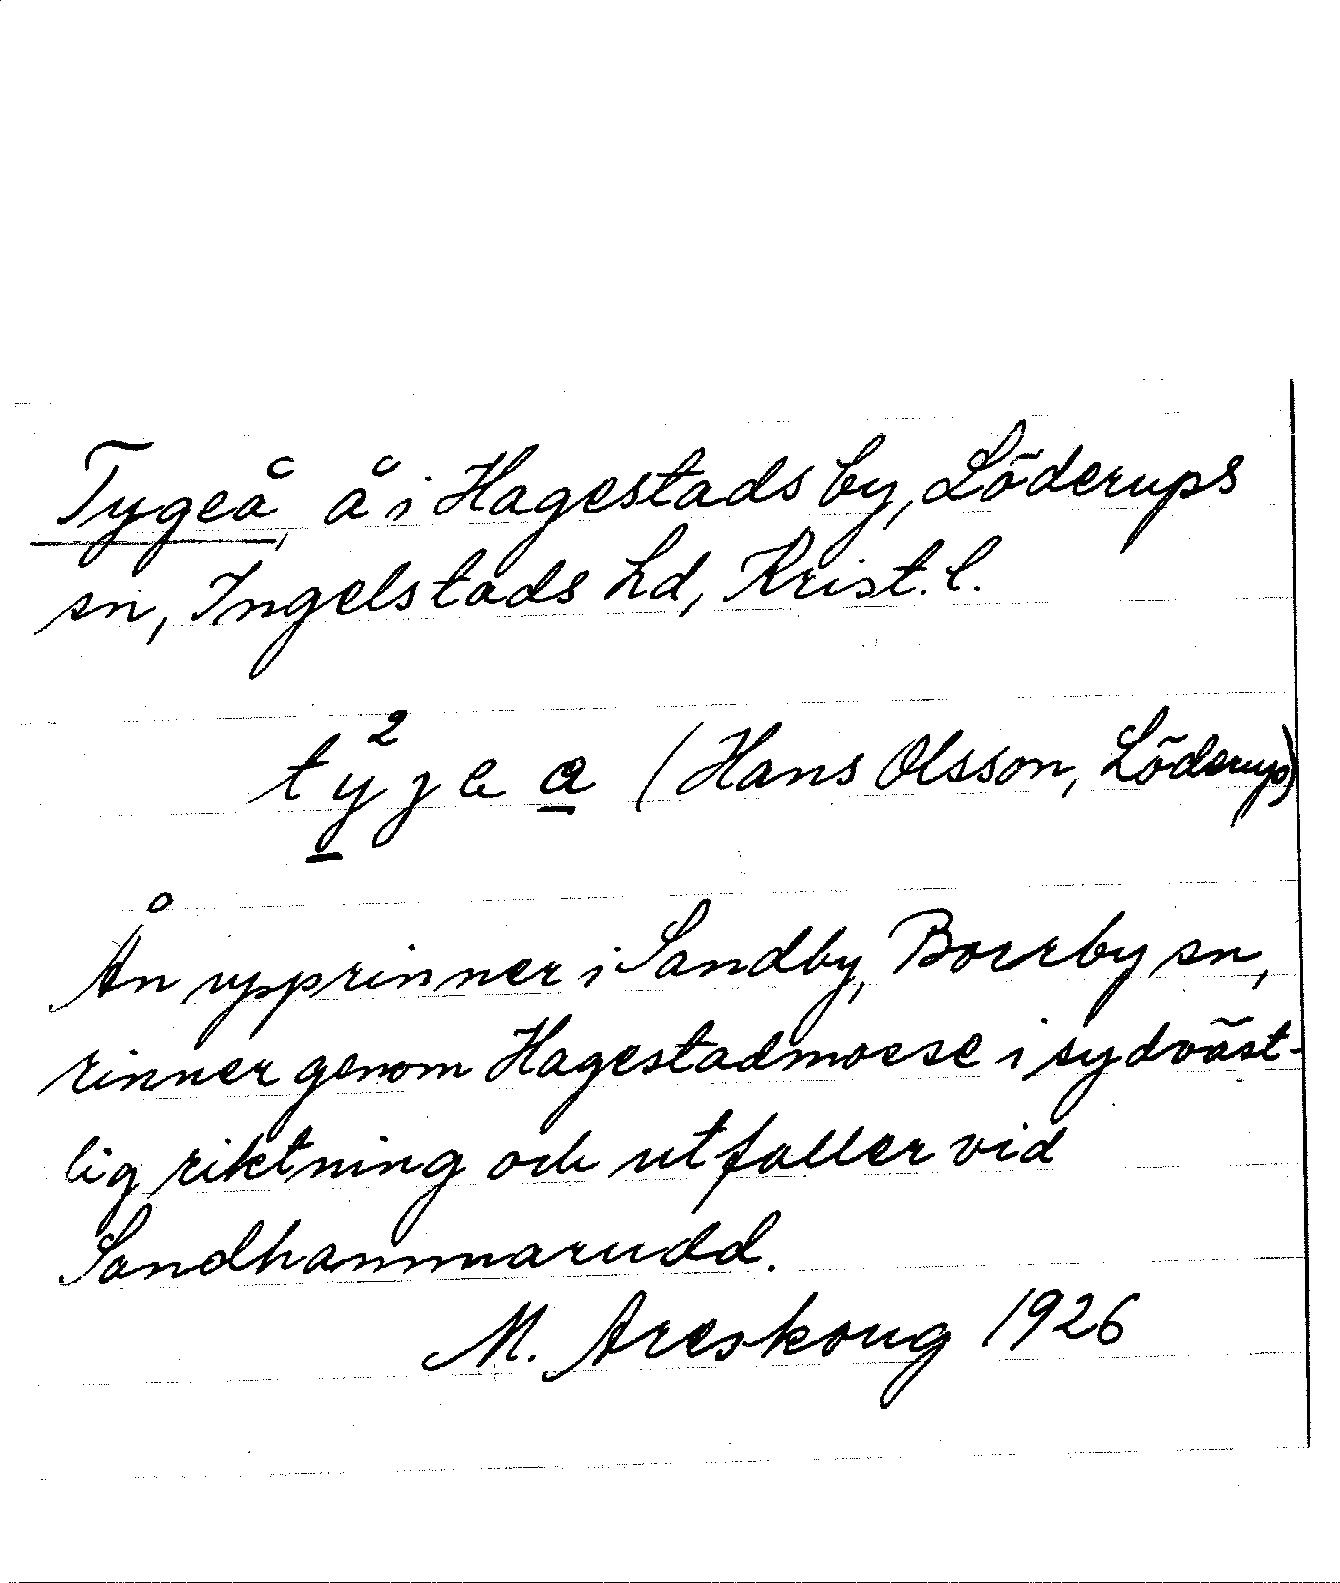 Tygeå, å i Hagestads by, Löderups
sn, Ingelstads hd, Krist. l.
t y̲ ² j e a̲ (Hans Olsson, Löderup)
Ån upprinner i Sandby, Borrby sn,
rinner genom Hagestadmosse i sydväst-
lig riktning och utfaller vid
Sandhammarudd.
M. Areskoug 1926